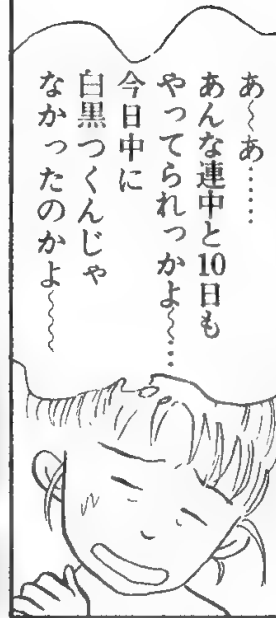 あ～あ……
あんな連中と10日も
やってられっかよ～…
今日中に
白黒つくんじゃ
なかったのかよ～～～